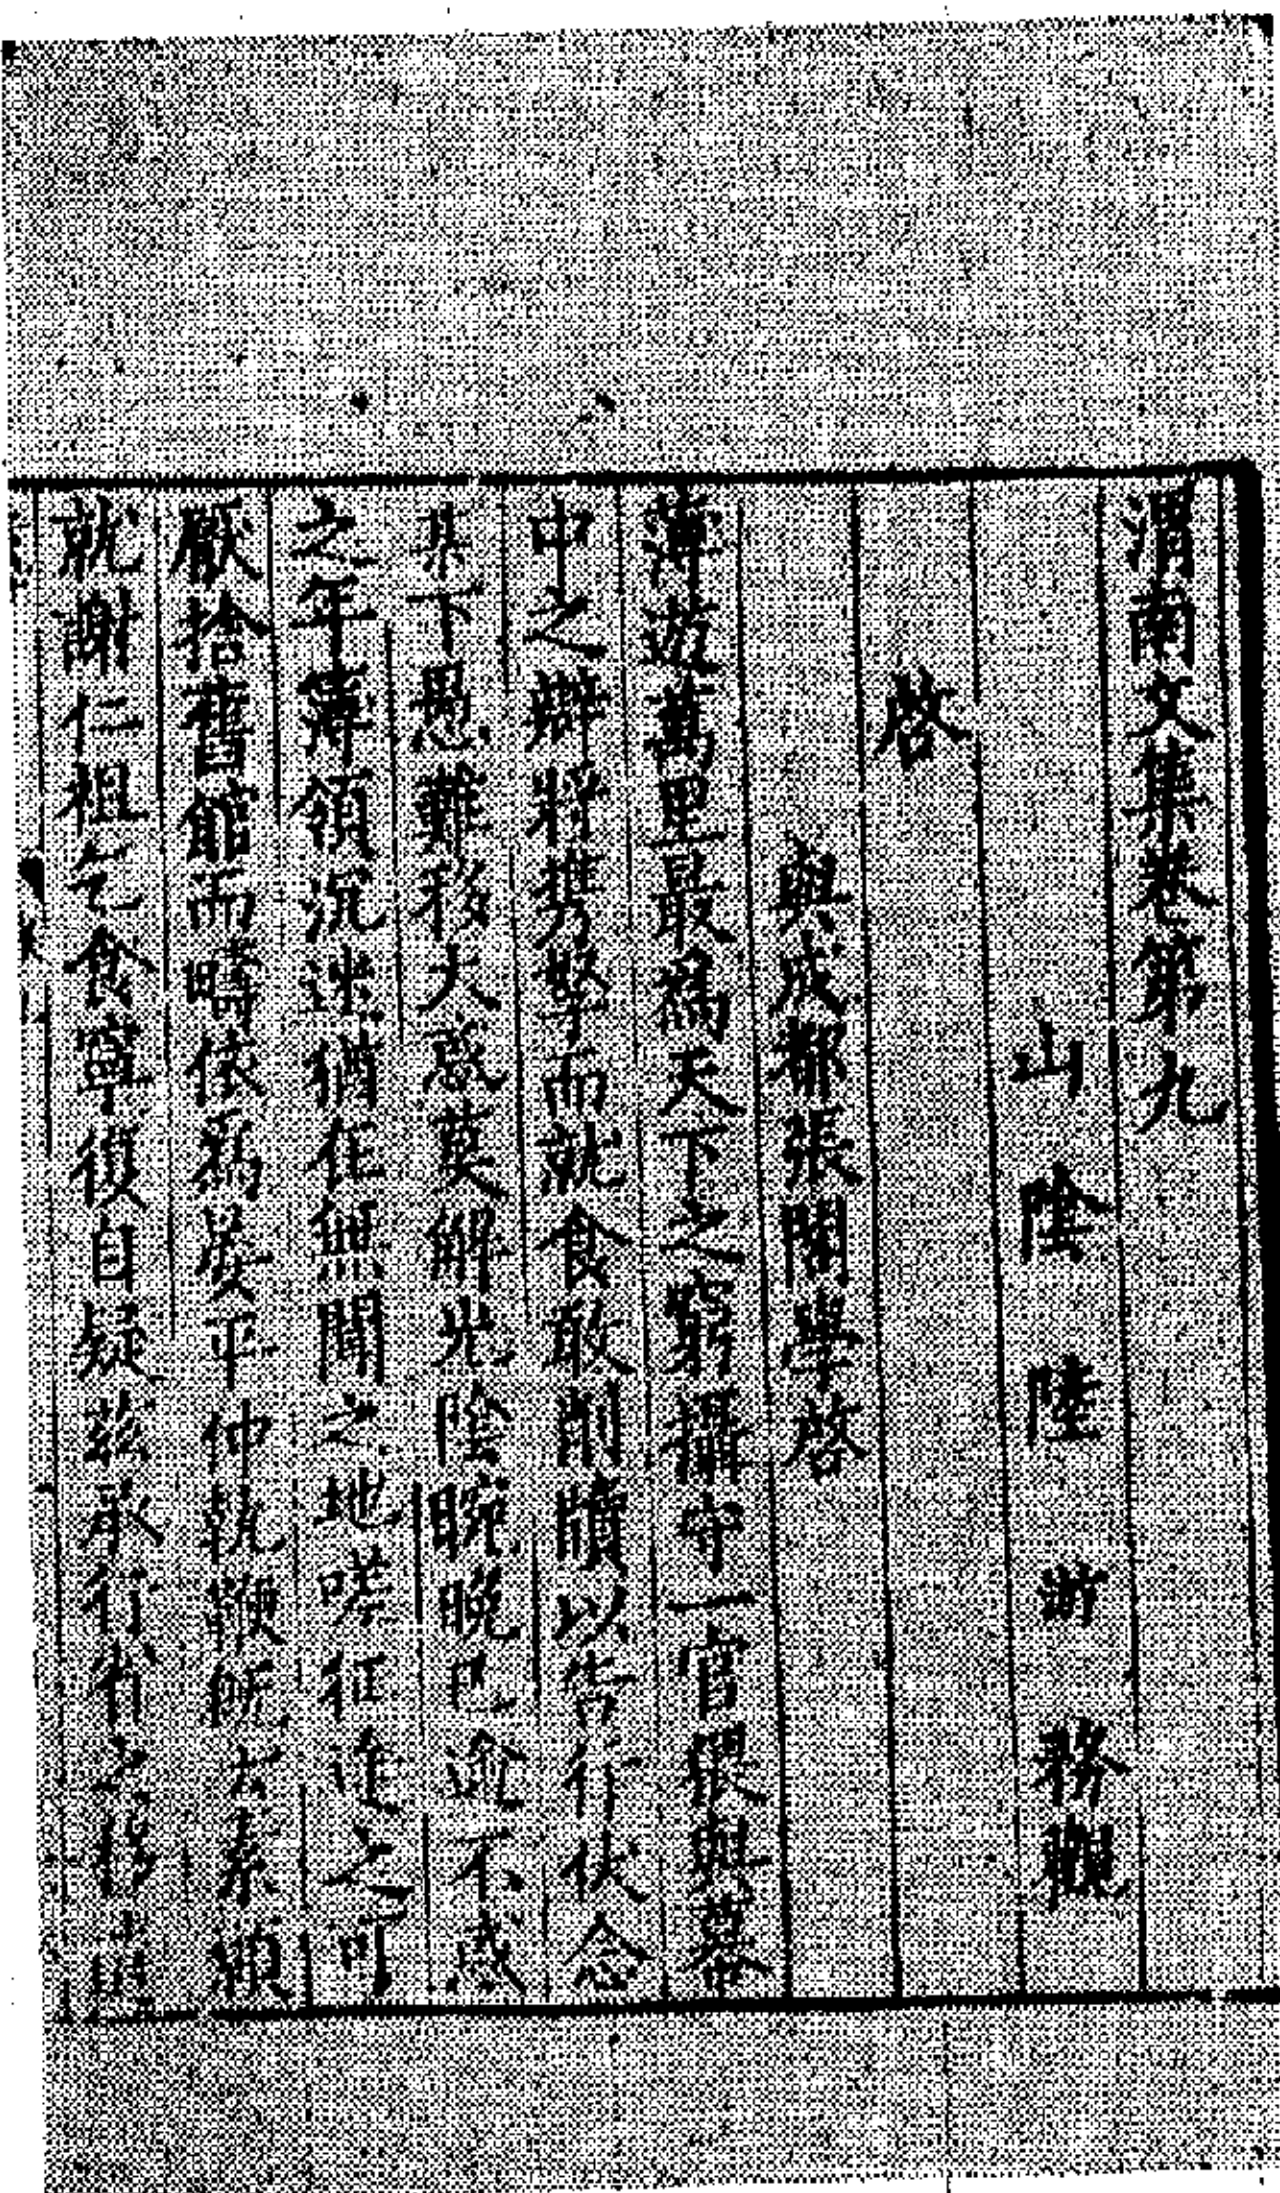 渭南文集卷第九
山陰陸游務觀
啓
與成都張閣學啓
薄遊萬里最爲天下之窮攝守一官猥與幕
中之辟將攜孥而就食敢削牘以告行伏念
某下愚難移大惑莫解光陰晼晚已逾不惑
之年簿領沉迷猶在無聞之地嗟征途之可
厭捨舊館而疇依爲晏平仲執鞭旣云素願
就謝仁祖乞食寧復自疑茲承行省之移